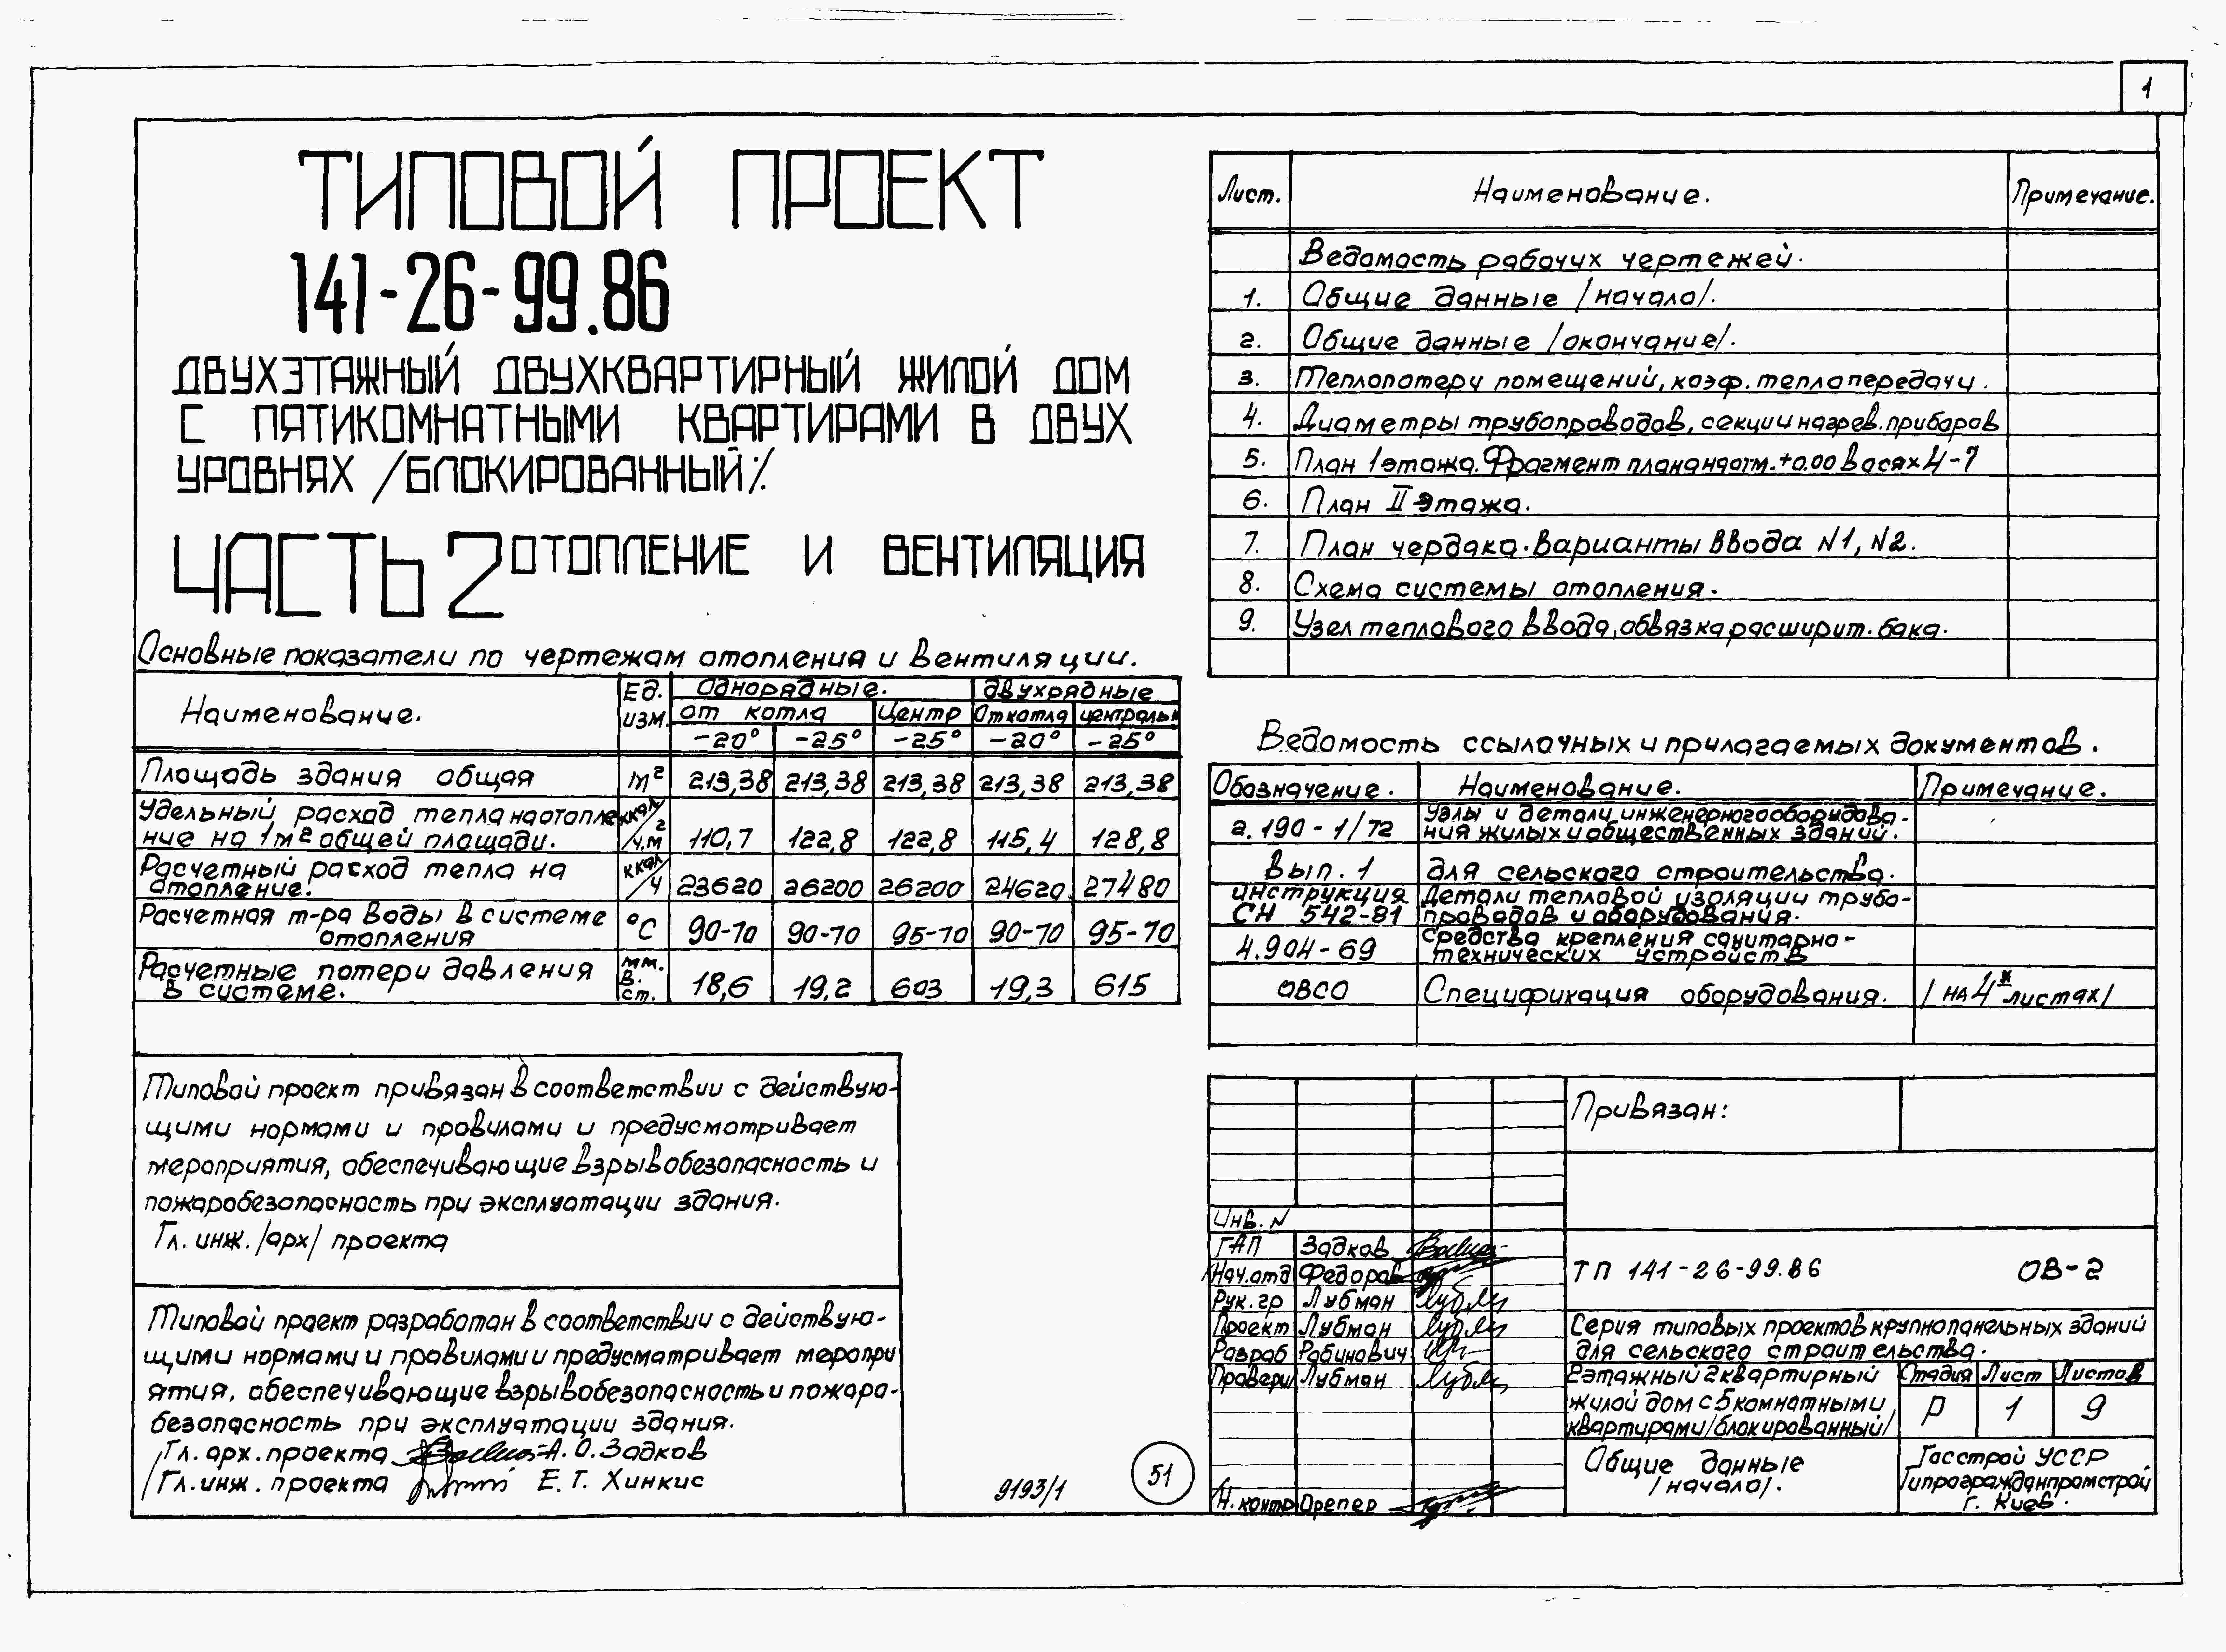 1
ТИПОВОЙ ПРОЕКТ
141-26-99.86
ДВУХЭТАЖНЫЙ ДВУХКВАРТИРНЫЙ ЖИЛОЙ ДОМ
С ПЯТИКОМНАТНЫМИ КВАРТИРАМИ В ДВУХ
УРОВНЯХ /БЛОКИРОВАННЫЙ/.
ЧАСТЬ 2 ОТОПЛЕНИЕ И ВЕНТИЛЯЦИЯ
Основные показатели по чертежам отопления и вентиляции.
Наименование. Ед. изм. Однорядные. двухрядные
от котла Центр От котла центральн
-20° -25° -25° -20° -25°
Площадь здания общая м² 213,38 213,38 213,38 213,38 213,38
Удельный расход тепла на отопле-
ние на 1 м² общей площади. ккал/ч.м² 110,7 122,8 122,8 115,4 128,8
Расчетный расход тепла на
отопление. ккал/ч 23620 26200 26200 24620 27480
Расчетная т-ра воды в системе
отопления °С 90-70 90-70 95-70 90-70 95-70
Расчетные потери давления
в системе. мм. в. ст. 18,6 19,2 603 19,3 615
Типовой проект привязан в соответствии с действую-
щими нормами и правилами и предусматривает
мероприятия, обеспечивающие взрывобезопасность и
пожаробезопасность при эксплуатации здания.
Гл. инж. /арх/ проекта
Типовой проект разработан в соответствии с действую-
щими нормами и правилами и предусматривает меропри
ятия, обеспечивающие взрывобезопасность и пожаро-
безопасность при эксплуатации здания.
Гл. арх. проекта А.О. Задков
Гл. инж. проекта Е.Г. Хинкис
9193/1
51
Лист. Наименование. Примечание.
Ведомость рабочих чертежей.
1. Общие данные /начало/.
2. Общие данные /окончание/.
3. Теплопотери помещений, коэф. теплопередачи.
4. Диаметры трубопроводов, секции нагрев. приборов
5. План 1 этажа. Фрагмент плана на отм. +0.00 в осях 4-7
6. План II этажа.
7. План чердака. Варианты ввода N1, N2.
8. Схема системы отопления.
9. Узел теплового ввода, обвязка расширит. бака.
Ведомость ссылочных и прилагаемых документов.
Обозначение. Наименование. Примечание.
2.190-1/72 Узлы и детали инженерного оборудова-
ния жилых и общественных зданий.
Вып. 1 для сельского строительства.
инструкция Детали тепловой изоляции трубо-
СН 542-81 проводов и оборудования.
4.904-69 Средства крепления санитарно-
технических устройств
ОВСО Спецификация оборудования. /на 4х листах/
Привязан:
Инв. N
ГАП Задков
Нач.отд Федоров
Рук. гр Лубман
Проект Лубман
Разраб Рабинович
Провери Лубман
Н. контр Препер
ТП 141-26-99.86 ОВ-2
Серия типовых проектов крупнопанельных зданий
для сельского строительства.
2этажный 2квартирный
жилой дом с 5 комнатными
квартирами/блокированный/
Стадия Лист Листов
Р 1 9
Общие данные
/начало/.
Госстрой УССР
Гипрогражданпромстрой
г. Киев.